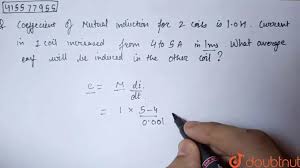 415577955
Coefficient of Mutual induction for 2 coils is 1.0H. Current
in 1 coil increased from 4 to 5 A in 1ms. What average
emf will be induced in the other coil ?
e = M di/dt
= 1 × 5-4/0.001
doubtnut